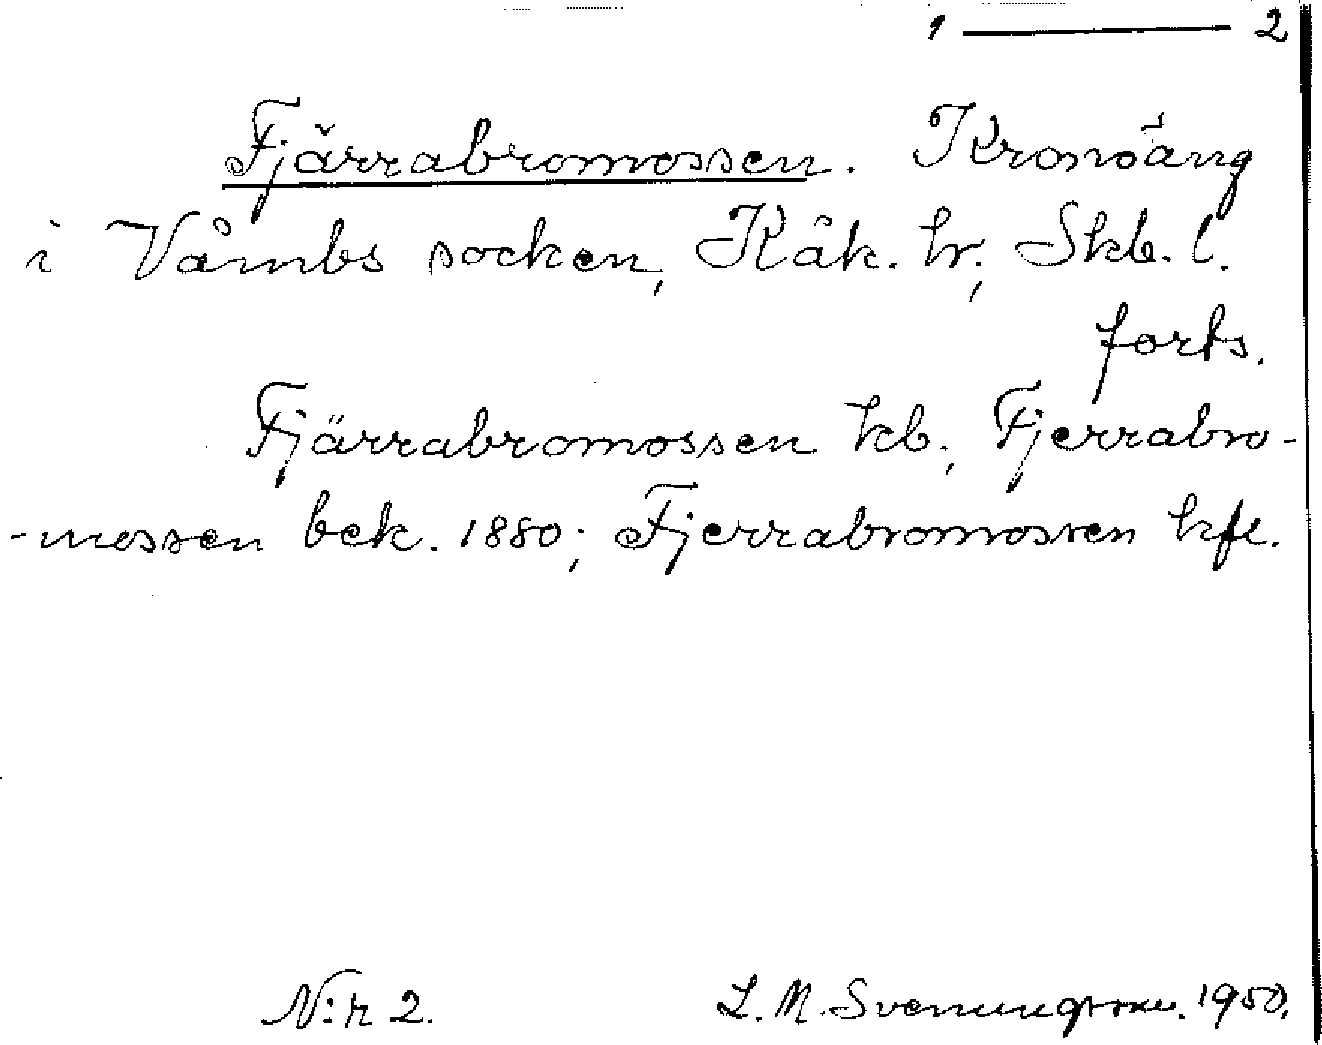 1 — 2
Fjärrabromossen. Kronoäng
i Våmbs socken, Kåk. hr; Skb. l.
forts.
Fjärrabromossen kb., Fjerrabro-
-mossen bek. 1880; Fjerrabromossen kfl.
N:r 2. L. M. Svenungsson. 1950.